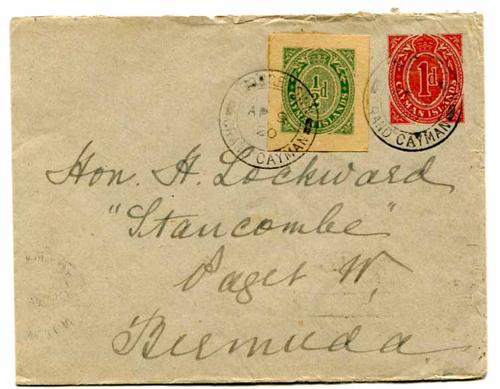 ½d
CAYMAN ISLANDS
1d
CAYMAN ISLANDS
GRAND CAYMAN
GRAND CAYMAN
Hon. H. Lockward
"Stancombe"
Paget W.
Bermuda